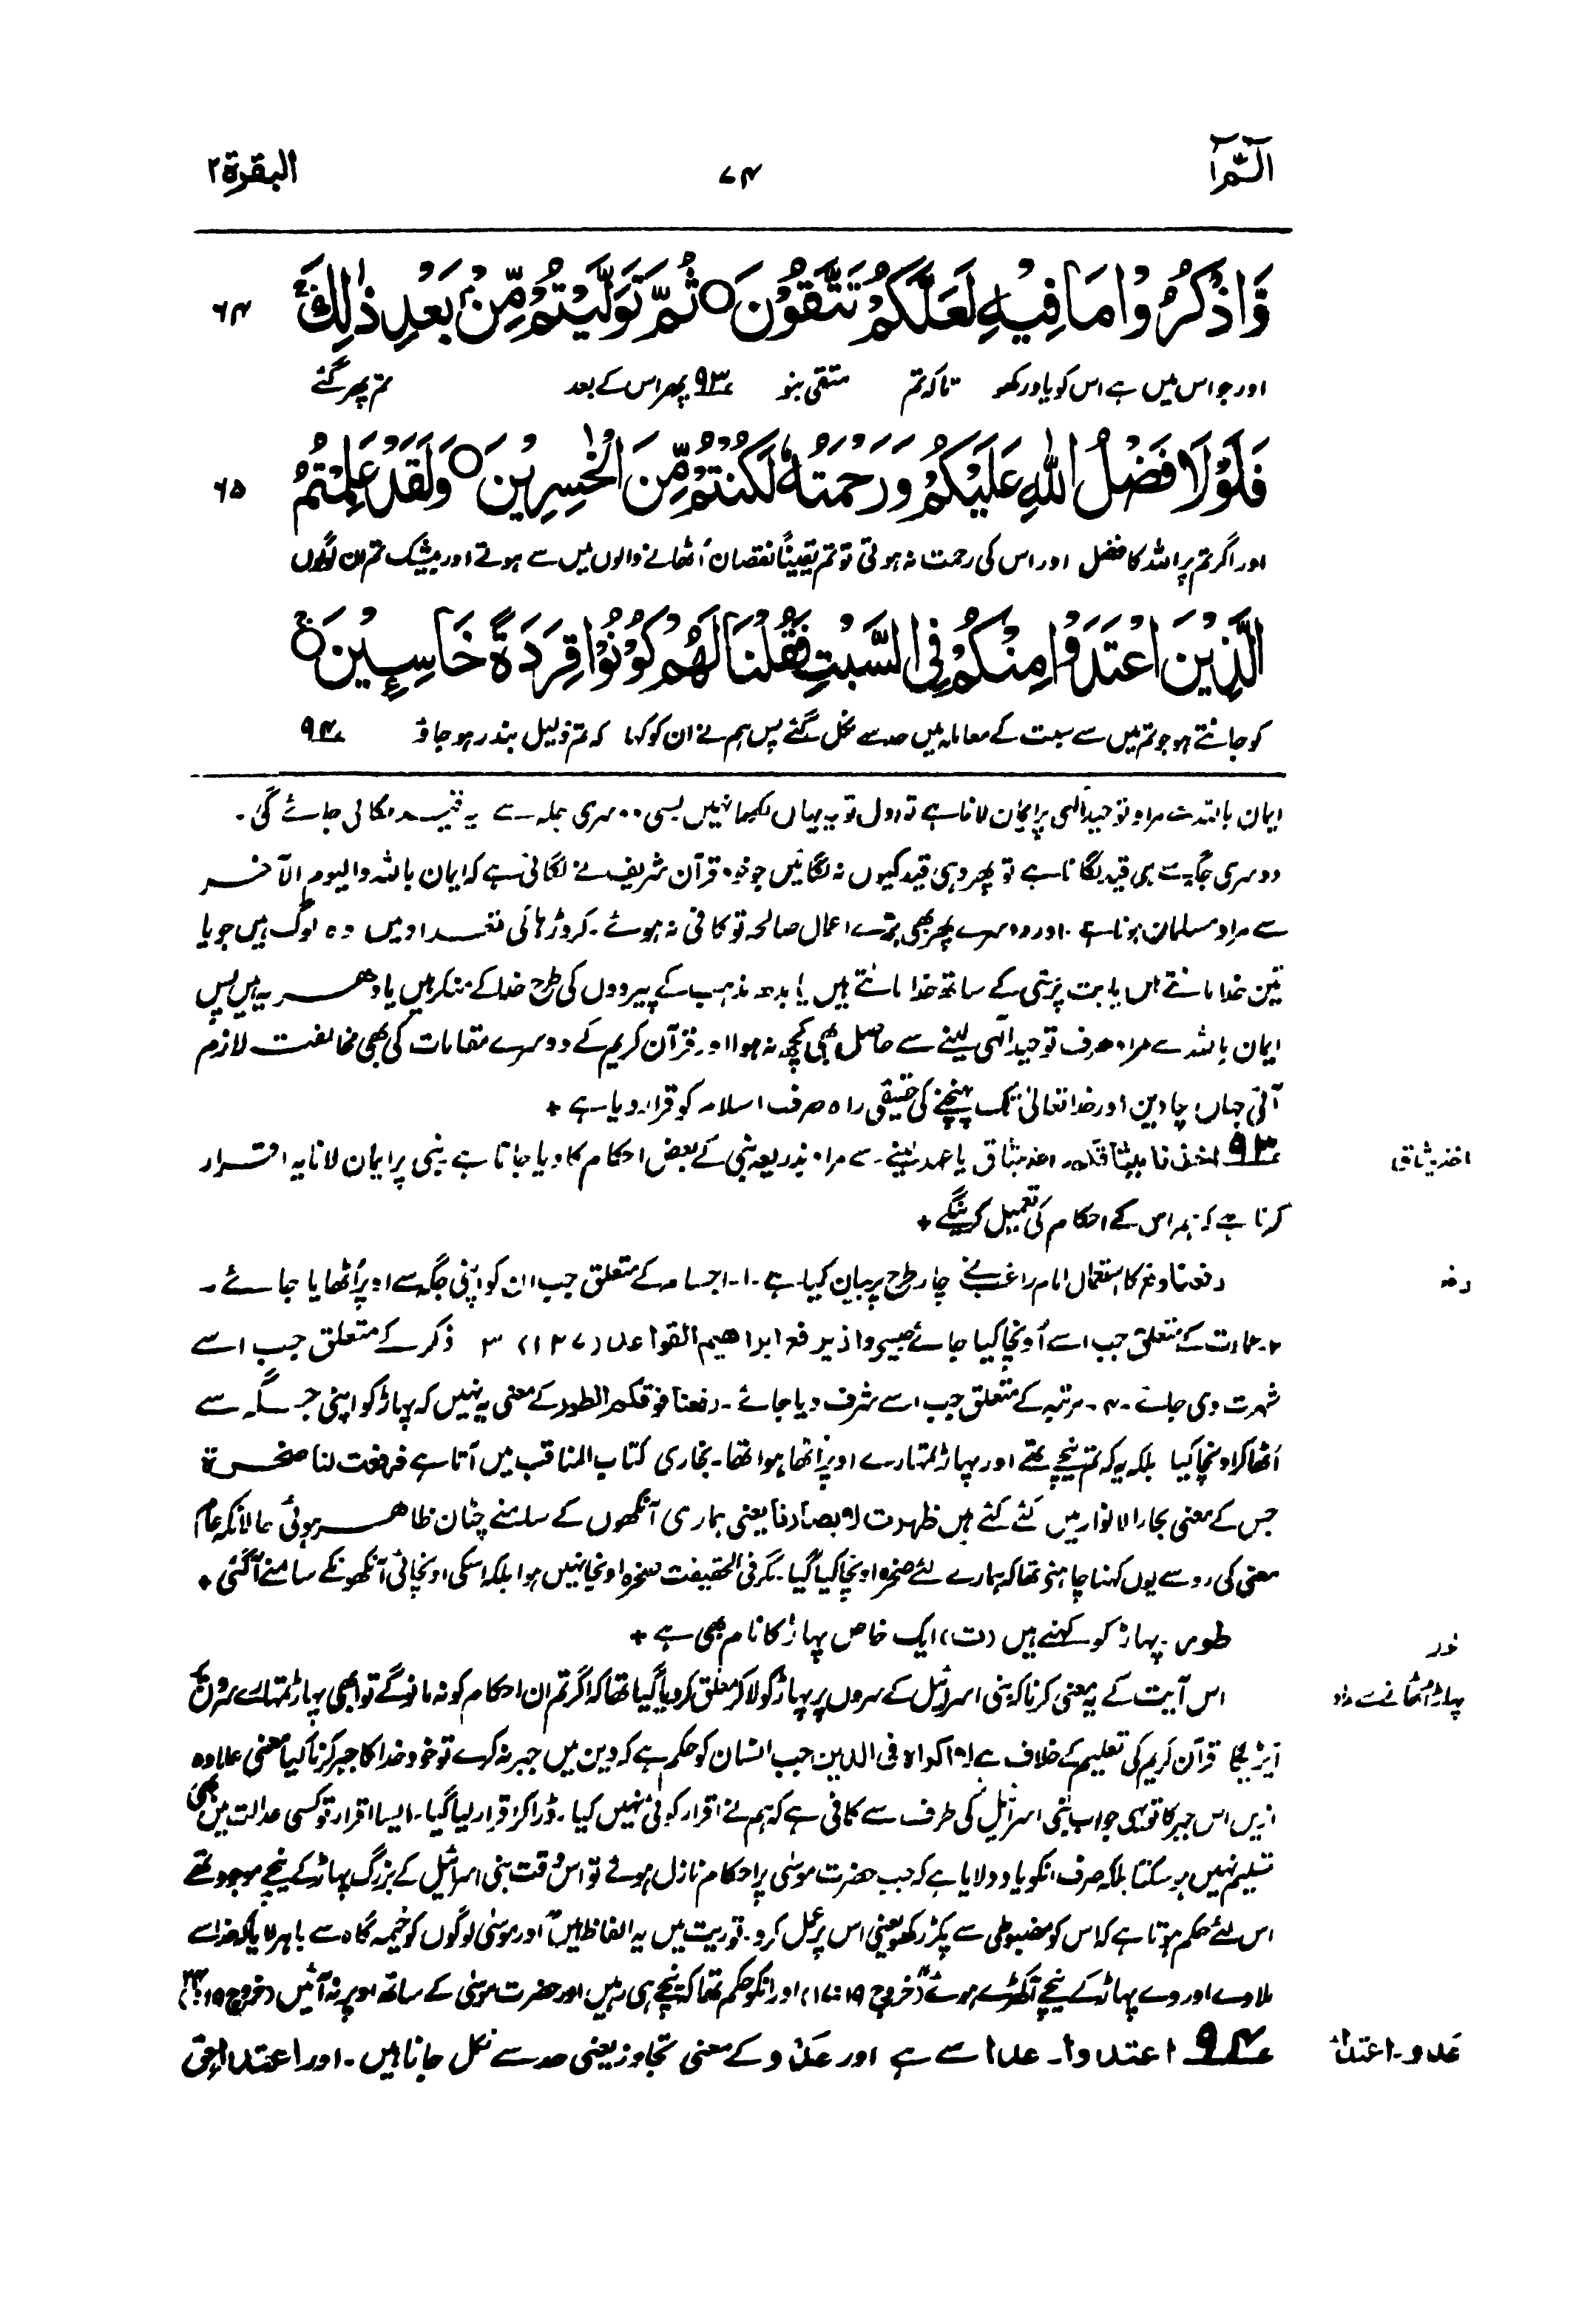 الٓمّٓ ا
۷۴
البقرة ۲
وَّاذْكُرُوْا مَا فِيْهِ لَعَلَّكُمْ تَتَّقُوْنَ ○ ثُمَّ تَوَلَّيْتُمْ مِّنْۢ بَعْدِ ذٰلِكَ ۚ
۶۴
اور جو اس میں ہے اس کو یاد رکھو تاکہ تم متقی بنو ۹۳؎ پھر اس کے بعد تم پھر گئے
فَلَوْلَا فَضْلُ اللّٰهِ عَلَيْكُمْ وَرَحْمَتُهٗ لَكُنْتُمْ مِّنَ الْخٰسِرِيْنَ ○ وَلَقَدْ عَلِمْتُمُ
۶۵
اور اگر تم پر اللہ کا فضل اور اس کی رحمت نہ ہوتی تو تم یقیناً نقصان اُٹھانے والوں میں سے ہوتے اور بیشک تم ان لوگوں
الَّذِيْنَ اعْتَدَوْا مِنْكُمْ فِى السَّبْتِ فَقُلْنَا لَهُمْ كُوْنُوْا قِرَدَةً خَاسِـِٕيْنَ ○ ۚ
کو جانتے ہو جو تم میں سے سبت کے معاملہ میں حد سے نکل گئے پس ہم نے ان کو کہا کہ تم ذلیل بندر ہو جاؤ ۹۴؎
ایمان باللہ سے مراد توحید الٰہی پر ایمان لانا ہے تو اول تو یہ یہاں لکھا نہیں کسی دوسری جگہ سے یہ قید لگائی جائے گی۔
دوسری جگہ سے ہی قید لگانا ہے تو پھر وہی قید کیوں نہ لگائیں جو خود قرآن شریف نے لگائی ہے کہ ایمان باللہ والیوم الآخر
سے مراد مسلمان ہونا ہے۔ اور دوسرے پھر بھی بڑے اعمال صالحہ تو کافی نہ ہوئے۔ کروڑہا کی تعداد میں وہ لوگ ہیں جو یا
تین خدا مانتے ہیں یا بت پرستی کے ساتھ خدا مانتے ہیں یا بدھ مذہب کے پیرووں کی طرح خدا کے منکر ہیں یا دہریہ ہیں پس
ایمان باللہ سے مراد صرف توحید الٰہی لینے سے حاصل بھی کچھ نہ ہوا اور قرآن کریم کے دوسرے مقامات کی بھی مخالفت لازم
آئی جہاں سچا دین اور خدا تعالیٰ تک پہنچنے کی حقیقی راہ صرف اسلام کو قرار دیا ہے +
اخذ میثاق
۹۳؎ اخذنا میثاقکم۔ اخذ میثاق یا عہد لینے۔ سے مراد بذریعہ نبی کے بعض احکام کا دیا جاتا ہے۔ نبی پر ایمان لانا یہ اقرار
کرنا ہے کہ ہم اس کے احکام کی تعمیل کرینگے +
رفع
رفعنا رفع کا استعمال امام راغب نے چار طرح پر بیان کیا ہے۔ ۱۔ اجسام کے متعلق جب ان کو اپنی جگہ سے اوپر اُٹھایا جائے۔
۲۔ عمارت کے متعلق جب اسے اُونچا کیا جائے جیسے واذ یرفع ابراھیم القواعد (۱۲۷) ۳ ذکر کے متعلق جب اسے
شہرت دی جائے۔ ۴۔ مرتبہ کے متعلق جب اسے شرف دیا جائے۔ رفعنا فوقکم الطور کے معنی یہ نہیں کہ پہاڑ کو اپنی جگہ سے
اُٹھا کر اونچا کیا بلکہ یہ کہ تم نیچے تھے اور پہاڑ تمہارے اوپر اُٹھا ہوا تھا۔ بخاری کتاب المناقب میں آتا ہے فرفعت لنا صخرة
جس کے معنی بحار الانوار میں کئے گئے ہیں ظہرت لابصارنا یعنی ہماری آنکھوں کے سامنے چٹان ظاہر ہوئی حالانکہ عام
معنی کی رو سے یوں کہنا چاہئے تھا کہ ہمارے لئے صخرہ اونچا کیا گیا۔ مگر فی الحقیقت صخرہ اونچا نہیں ہوا بلکہ اسکی اونچائی آنکھونکے سامنے آگئی +
طور
طور۔ پہاڑ کو کہتے ہیں (ت) ایک خاص پہاڑ کا نام بھی ہے +
پہاڑ اُٹھانے سے مراد
اس آیت کے یہ معنی کرنا کہ بنی اسرائیل کے سروں پر پہاڑ کو لا کر معلق کر دیا گیا تھا کہ اگر تم ان احکام کو نہ مانو گے تو ابھی پہاڑ تمہارے سروں پر
آ پڑیگا قرآن کریم کی تعلیم کے خلاف ہے لا اکراہ فی الدین جب انسان کو حکم ہے کہ دین میں جبر نہ کرے تو خود خدا کا جبر کرنا کیا معنی علاوہ
ازیں اس جبر کا تو یہی جواب بنی اسرائیل کی طرف سے کافی ہے کہ ہم نے اقرار کوئی نہیں کیا۔ ڈرا کر اقرار لیا گیا۔ ایسا اقرار تو کسی عدالت میں بھی
تسلیم نہیں ہو سکتا بلکہ صرف انکو یاد دلایا ہے کہ جب حضرت موسیٰ پر احکام نازل ہوئے تو اس وقت بنی اسرائیل کے بزرگ پہاڑ کے نیچے موجود تھے
اس لئے حکم ہوتا ہے کہ اس کو مضبوطی سے پکڑ رکھو یعنی اس پر عمل کرو۔ توریت میں یہ الفاظ ہیں "اور موسیٰ لوگوں کو خیمہ گاہ سے باہر لایا کہ خدا سے
ملاوے اور وے پہاڑ کے نیچے آکھڑے ہوئے" (خروج ۱۹: ۱۷) اور انکو حکم تھا کہ نیچے ہی رہیں اور حضرت موسیٰ کے ساتھ اوپر نہ آئیں (خروج ۱۹: ۲۴)
عدو۔ اعتداء
۹۴؎ اعتدوا۔ عدا سے ہے اور عَدْو کے معنی تجاوز یعنی حد سے نکل جانا ہیں۔ اور اعتداء حق